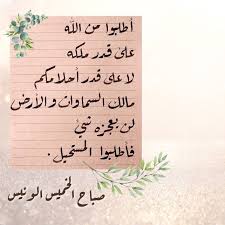 أطلبوا من الله
على قدر ملكه
لا على قدر أحلامكم
مالك السماوات والأرض
لن يعجزه شيئ
فأطلبوا المستحيل .
صباح الخميس الونيس